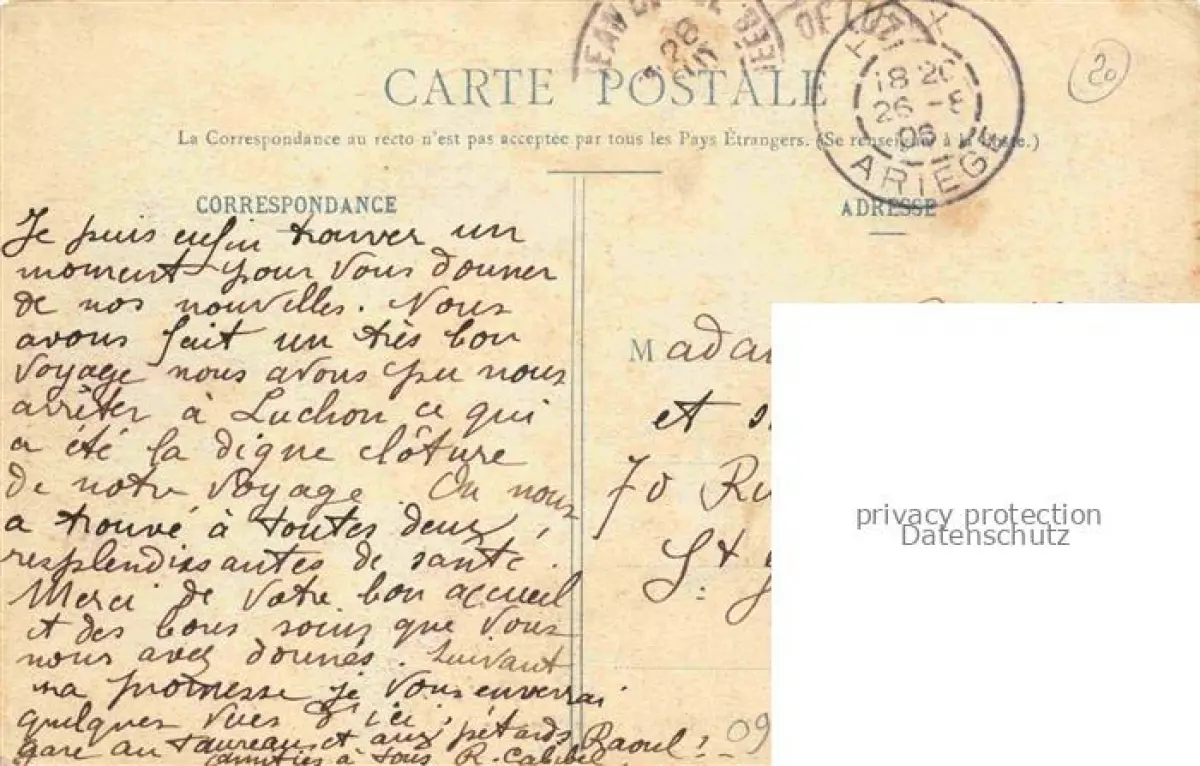 CARTE POSTALE
La Correspondance au recto n'est pas acceptée par tous les Pays Étrangers. (Se renseigner à la Poste.)
CORRESPONDANCE
ADRESSE
18 20
26 - 8
06
ARIEGE
28
20
Je puis enfin trouver un
moment pour vous donner
de nos nouvelles. Nous
avons fait un très bon
voyage nous avons pu nous
arrêter à Luchon ce qui
a été la digne clôture
de notre voyage. On nous
a trouvé à toutes deux,
resplendissantes de santé.
Merci de votre bon accueil
et des bons soins que vous
nous avez donnés. Suivant
ma promesse je vous enverrai
quelques vues d'ici,
gare au taureau et aux pétards Raoul!
amitiés à tous R. Calibel
Mada
et
70 Ru
St
09
privacy protection
Datenschutz